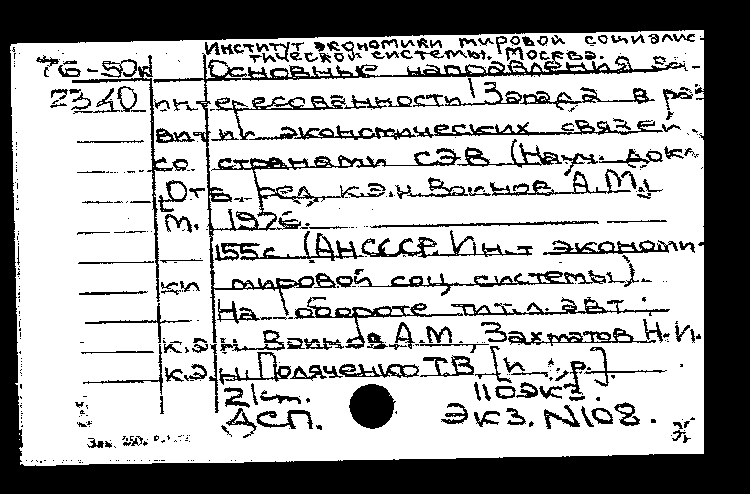 Институт экономики мировой социалис-
тической системы. Москва.
76-50к Основные направления за-
2340 интересованности Запада в раз
витии экономических связей
со странами СЭВ (Науч. докл
Отв. ред. к.э.н. Воинов А.М.,
М. 1976.
155с. (АНСССР. Ин-т экономи-
ки мировой соц. системы).
На обороте тит.л. авт.:
к.э.н. Воинов А.М., Захматов Н.И.
к.э.н. Поляченко Т.В. [и др.].
21ст. 110экз.
ДСП. Экз. N108.